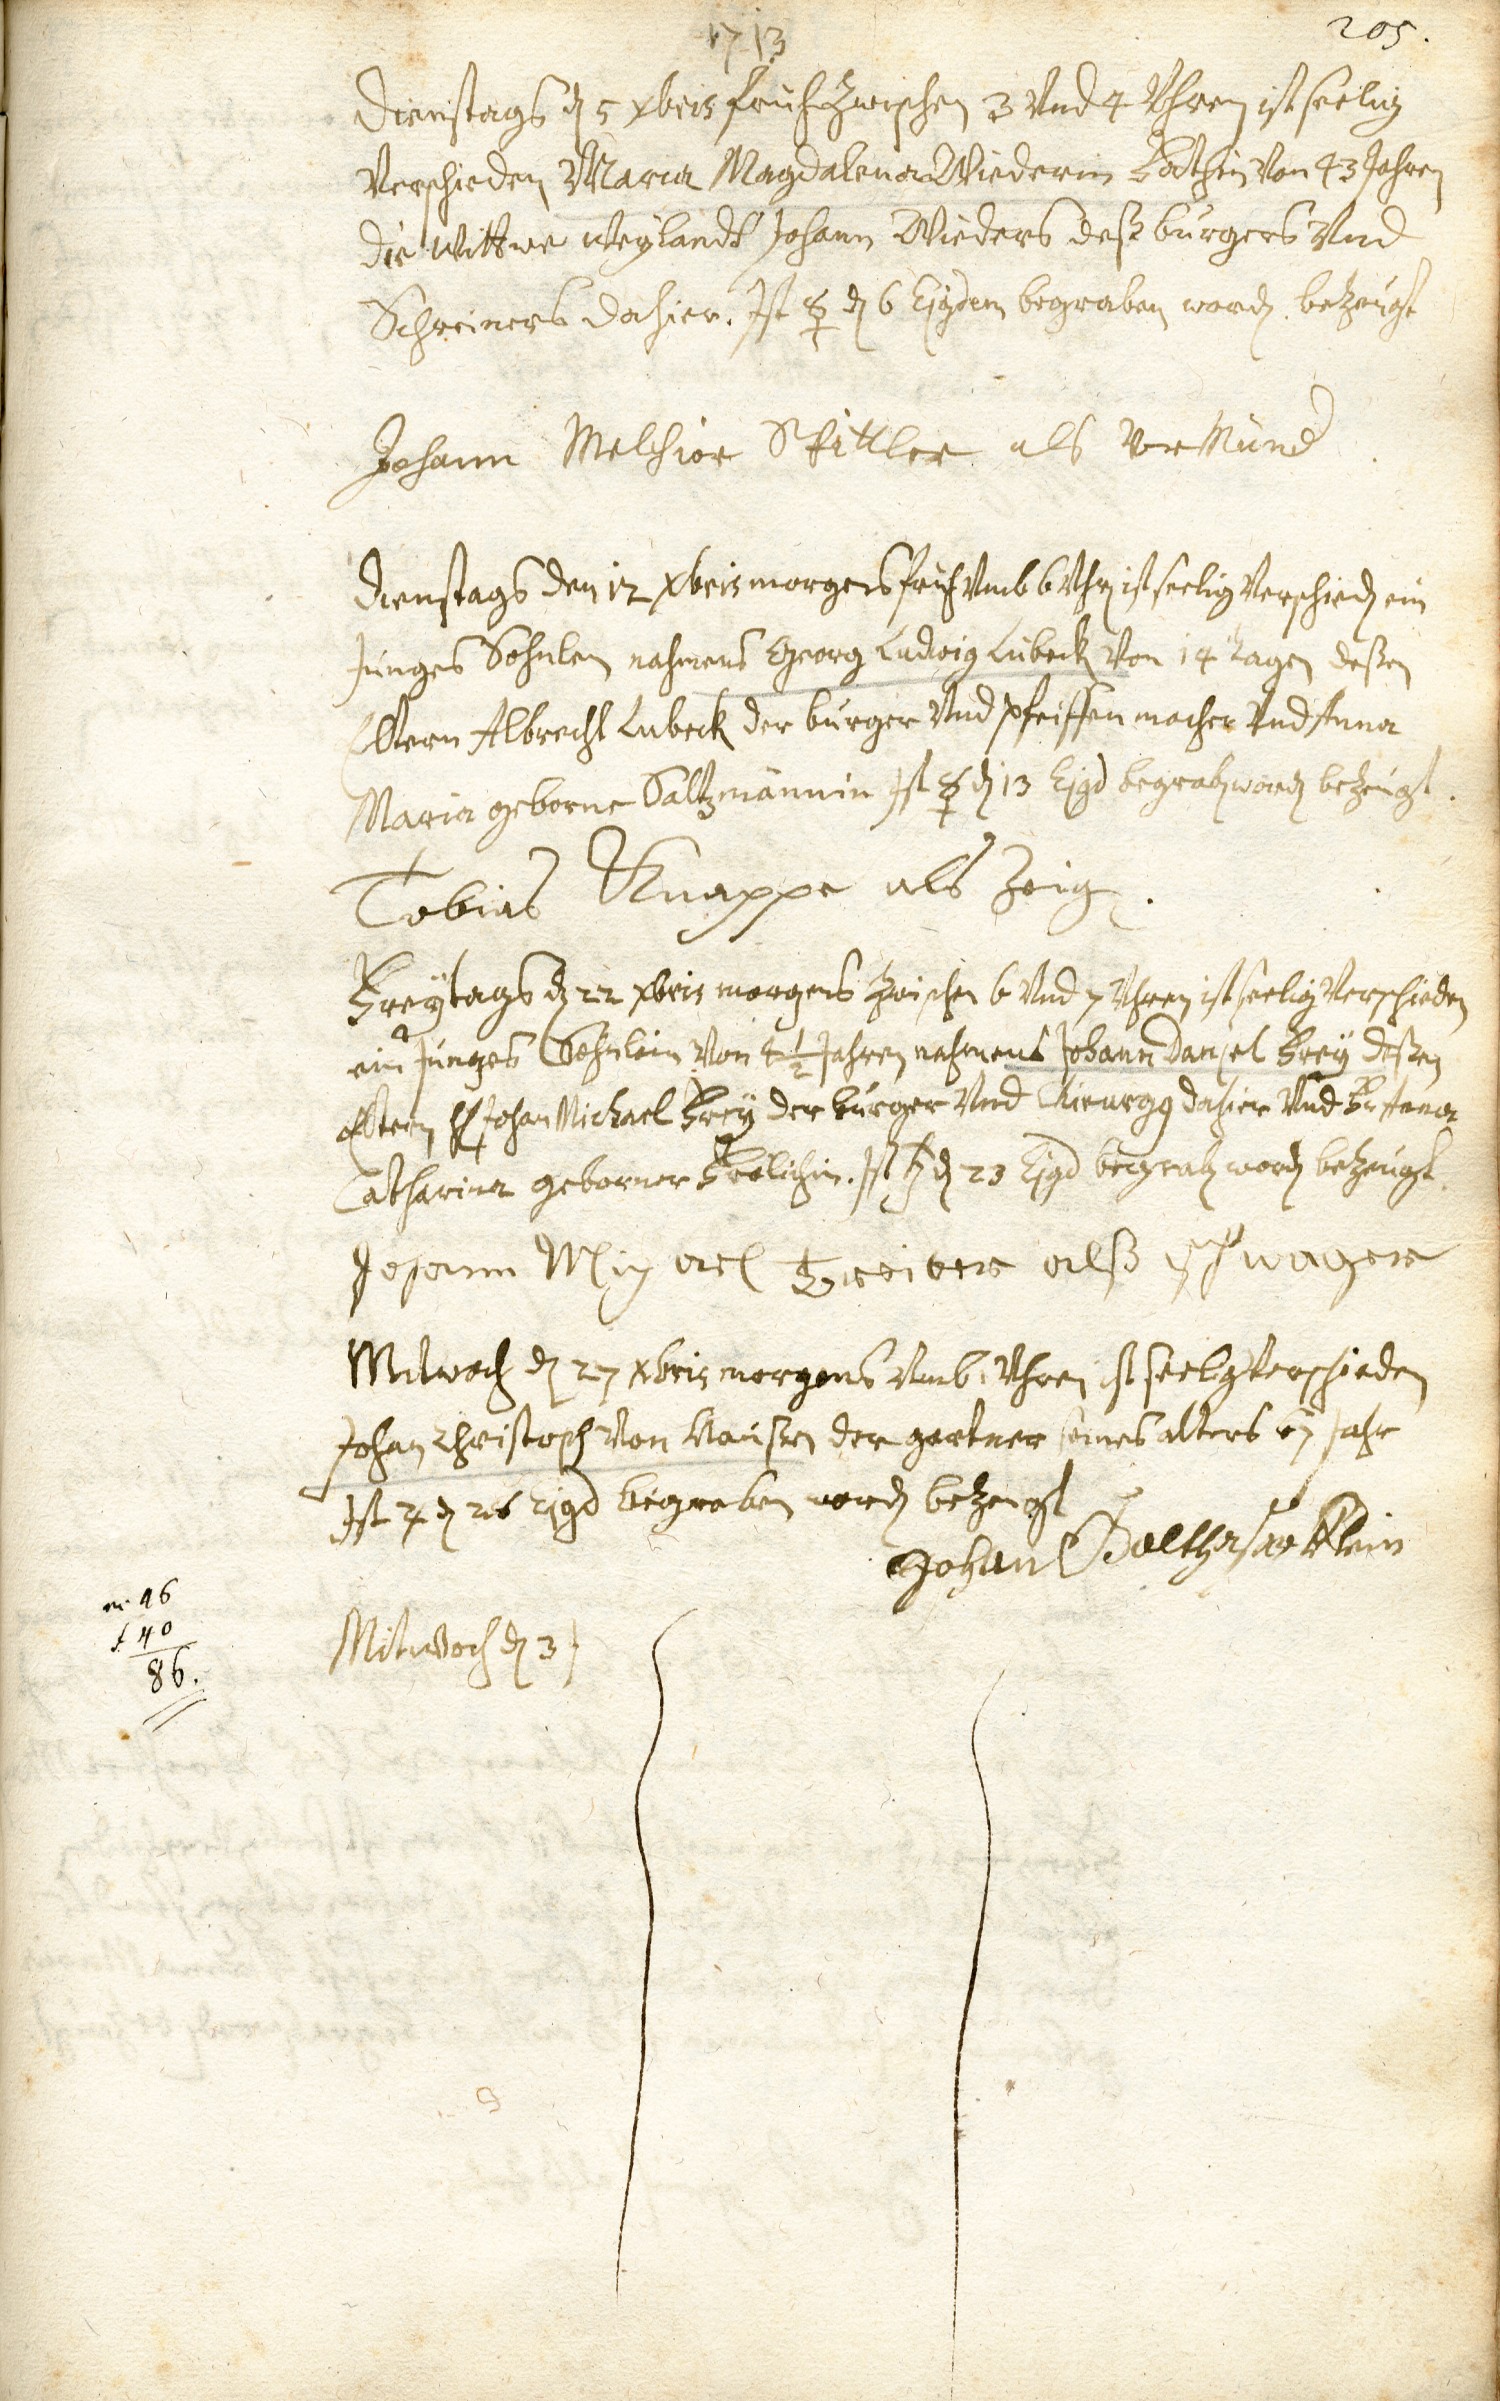 1713
205.
Dienstags dẽ 5 xbris früh Zwischen 3 Vnd 4 Vhren ist seelig
Verschieden Maria Magdalena Wiederin Von 43 Jahren
die Wittwe weÿlandt Johann Wieders deß burgers Vnd
Schreiners dahier. Ist ☿ dẽ 6 Ejusdem begraben word. bezeugt
Johann Melchior Stittler als VorMund
Dienstags den 12 xbris morgens früh Vmb 6 Vhr ist seelig Verschied. ein
Junges Söhnlen nahmens Georg Ludwig Lübeck Von 14 Tagen deßen
Eltern Albrecht Lübeck der burger Vnd pfeiffenmacher Vnd Anna
Maria geborne Saltzmännin Ist ☿ dẽ 13 Ejsd begrab. word. bezeugt.
Tobias Knappe als Zeig.
Freÿtags dẽ 22 xbris morgens Zwischen 6 Vnd 7 Vhren ist seelig Verschieden
ein Junges Söhnlein Von 4 1/2 Jahren nahmens Johann Daniel Freÿ deßen
Eltern H Johan Michael Freÿ der burger Vnd Chirurgg dahier Vnd Fr Anna
Catharina geborner Frölichin. Ist ♄ dẽ 23 Ejsd begrab. word. bezeugt.
Johann Michael Treiber alß schwager
Mitwoch dẽ 27 xbris morgens Vmb 1 Vhren ist seelig Verschieden
Johan Christoph Von Haußen der gertner seines alters 67 Jahr
Ist ♃ dẽ 28 Ejsd begraben word. bezeugt
Johan Balthasar Klein
m. 46
f. 40
86.
Mitwoch dẽ 3